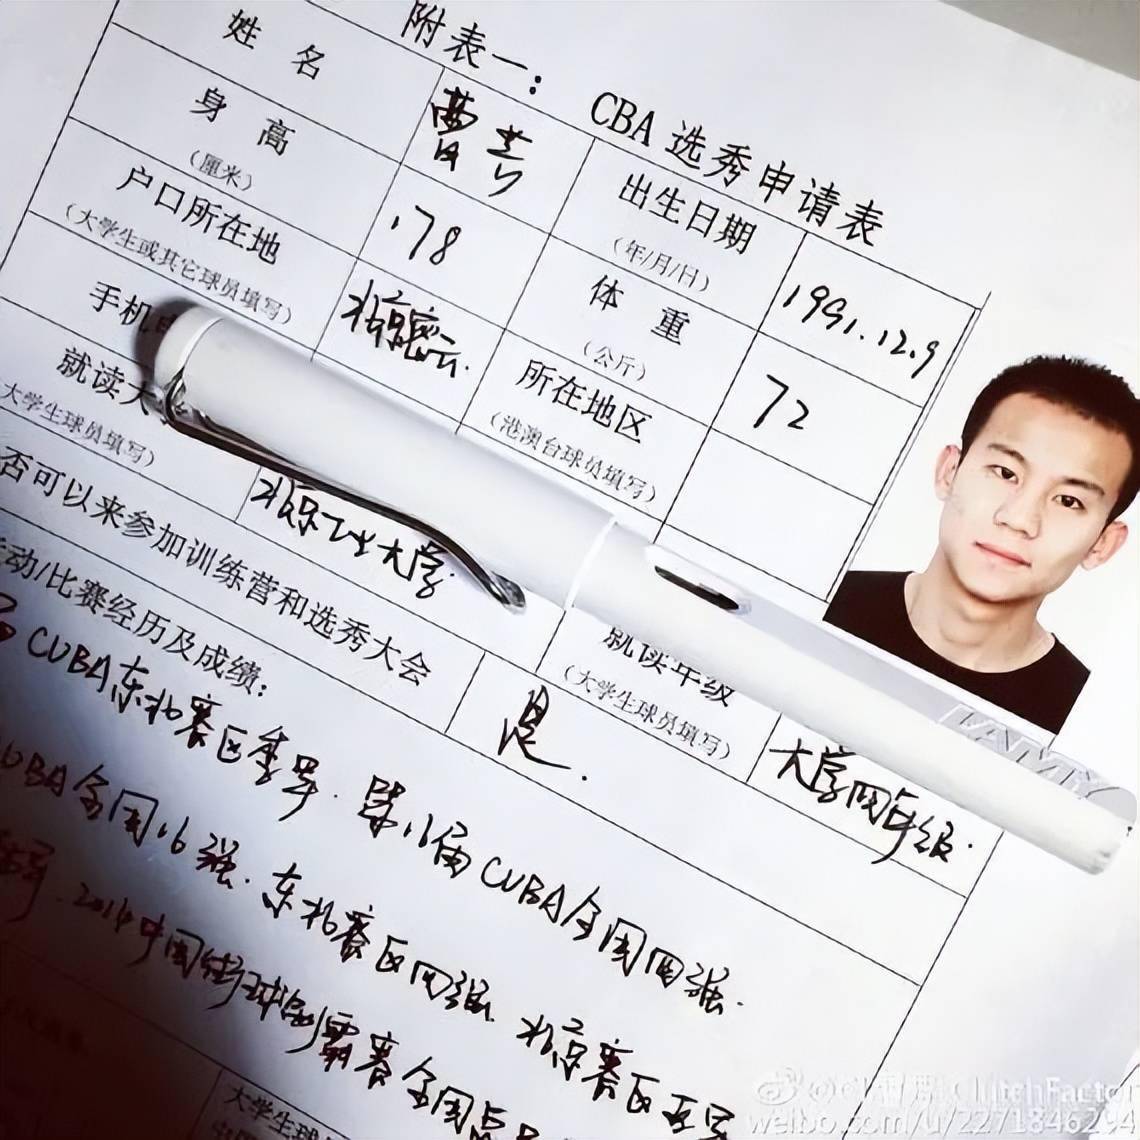 附表一：
CBA选秀申请表
姓 名
曹芳
出生日期
（年/月/日）
1991.12.9
身 高
（厘米）
178
体 重
（公斤）
72
户口所在地
（大学生或其它球员填写）
北京密云.
所在地区
（港澳台球员填写）
手机
就读大
大学生球员填写）
北京工业大学.
就读年级
（大学生球员填写）
大学四年级.
否可以来参加训练营和选秀大会
是.
动/比赛经历及成绩：
CUBA东北赛区季军. 第16届CUBA全国四强.
CUBA全国16强. 东北赛区四强. 北京赛区亚军
2014中国街球争霸赛全国总
大学生球
LAMY
ClutchFactor
weibo.com/u/2271846294